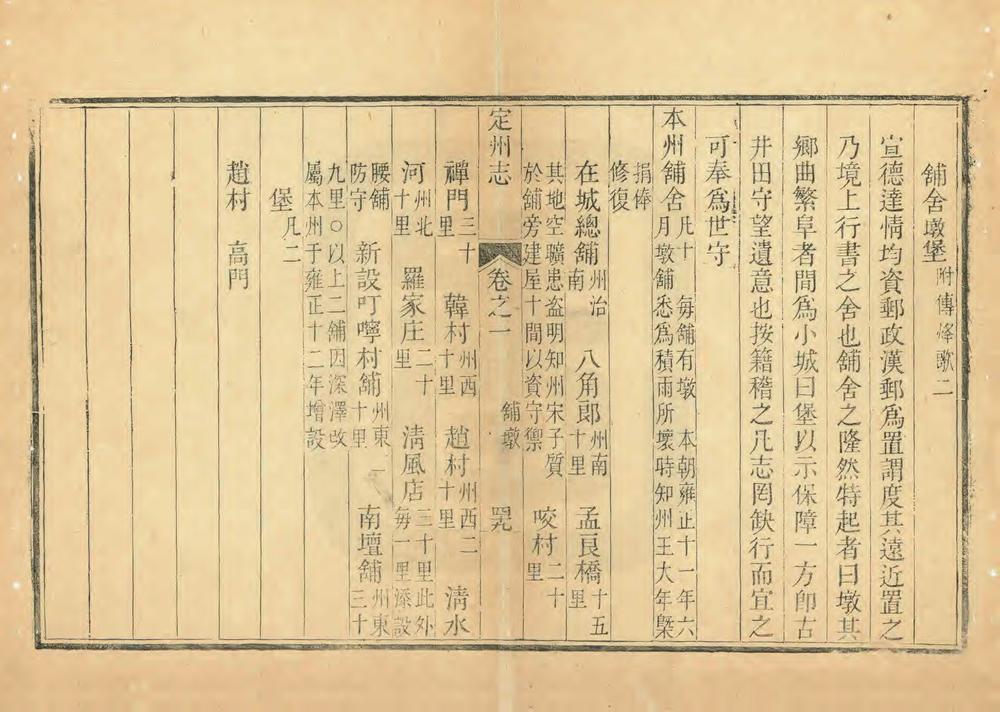 舖舍墩堡 附傳烽歌二
宣德達情均資郵政漢郵爲置謂度其遠近置之
乃境上行書之舍也舖舍之隆然特起者曰墩其
鄉曲繁阜者間爲小城曰堡以示保障一方卽古
井田守望遺意也按籍稽之凡志罔缺行而宜之
可奉爲世守
本州舖舍 凡十 每舖有墩 本朝雍正十一年六
月墩舖悉爲積雨所壞時知州王大年槩
捐俸
修復
在城總舖 州治南 八角郎 州南十里 孟良橋 十五里
其地空曠患盗明知州宋子質
於舖旁建屋十間以資守禦 咬村 二十里
定州志 卷之一 舖墩 四九
禪門 三十里 韓村 州西十里 趙村 州西二十里 清水
河 州北十里 羅家庄 二十里 清風店 三十里此外每一里添設
腰舖防守 新設叮嚀村舖 州東十里 南壇舖 州東三十
九里○以上二舖因深澤改
屬本州于雍正十二年增設
堡 凡二
趙村 高門